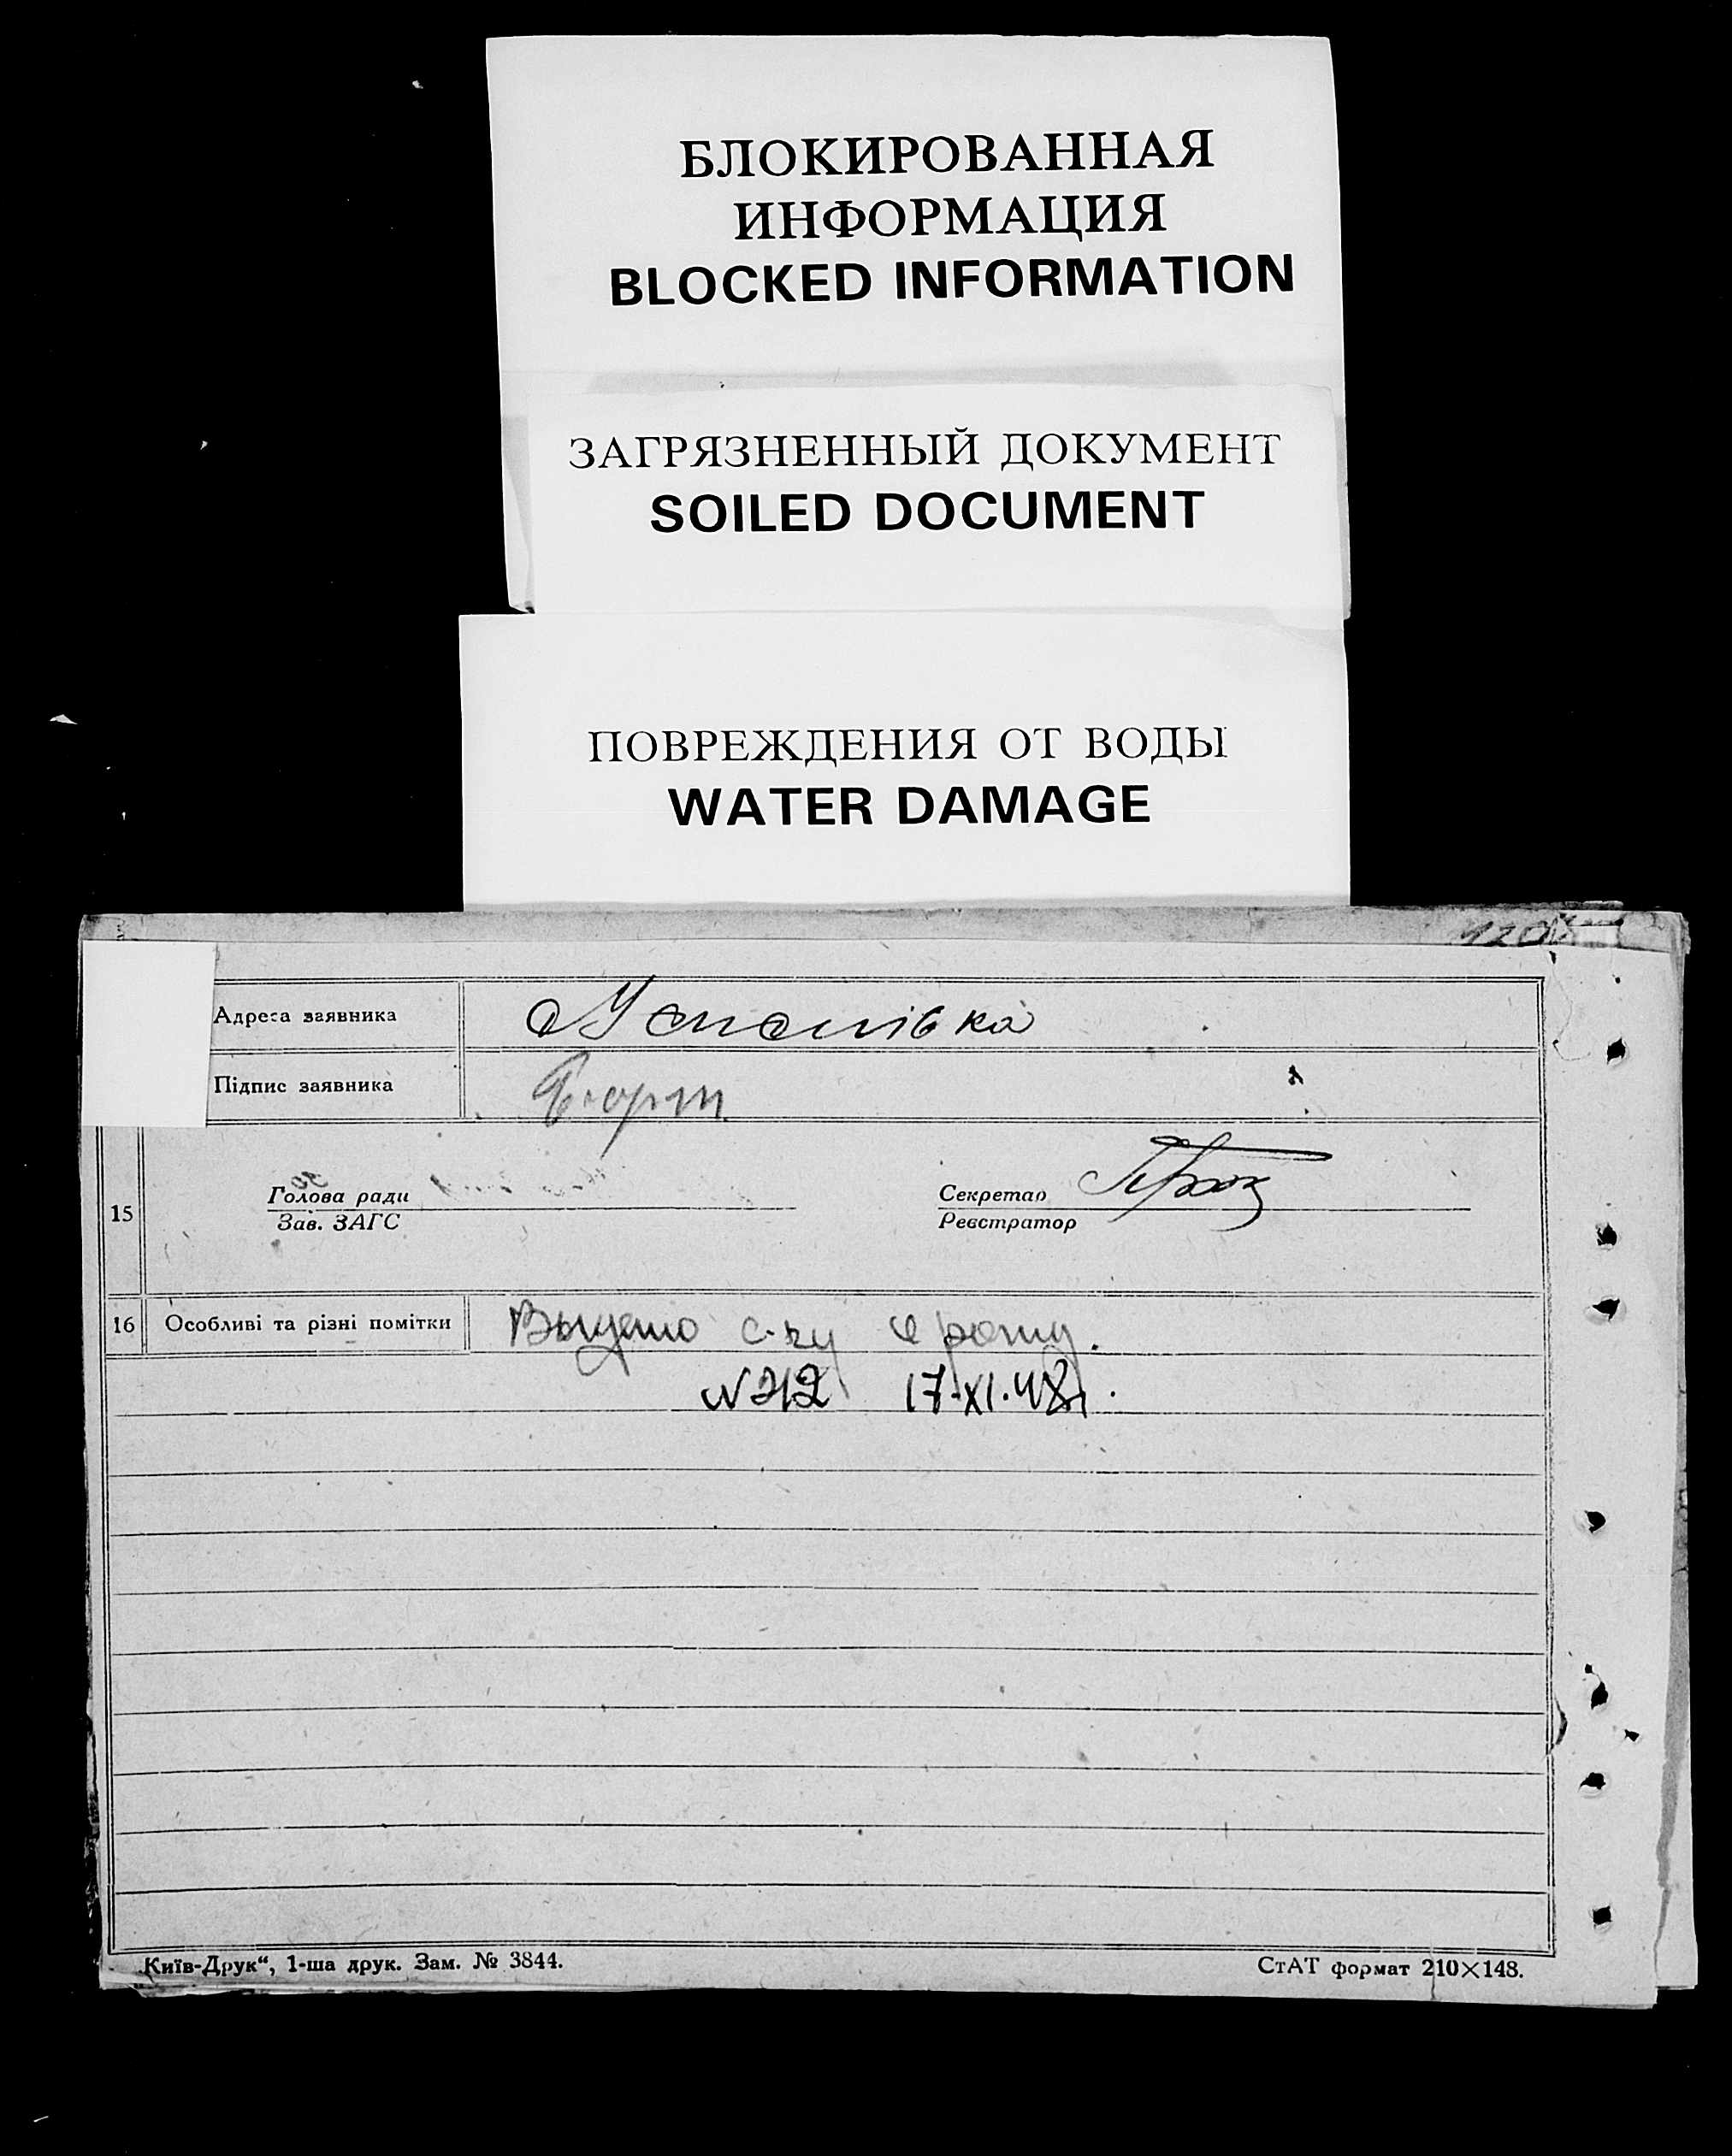 БЛОКИРОВАННАЯ
ИНФОРМАЦИЯ
BLOCKED INFORMATION
ЗАГРЯЗНЕННЫЙ ДОКУМЕНТ
SOILED DOCUMENT
ПОВРЕЖДЕНИЯ ОТ ВОДЫ
WATER DAMAGE
Адреса заявника
Підпис заявника
Голова ради
Секретар
15
Зав. ЗАГС
Реєстратор
16 Особливі та різні помітки
17.XI.48
Київ-Друк“, 1-ша друк. Зам. № 3844.
СтАТ формат 210×148.